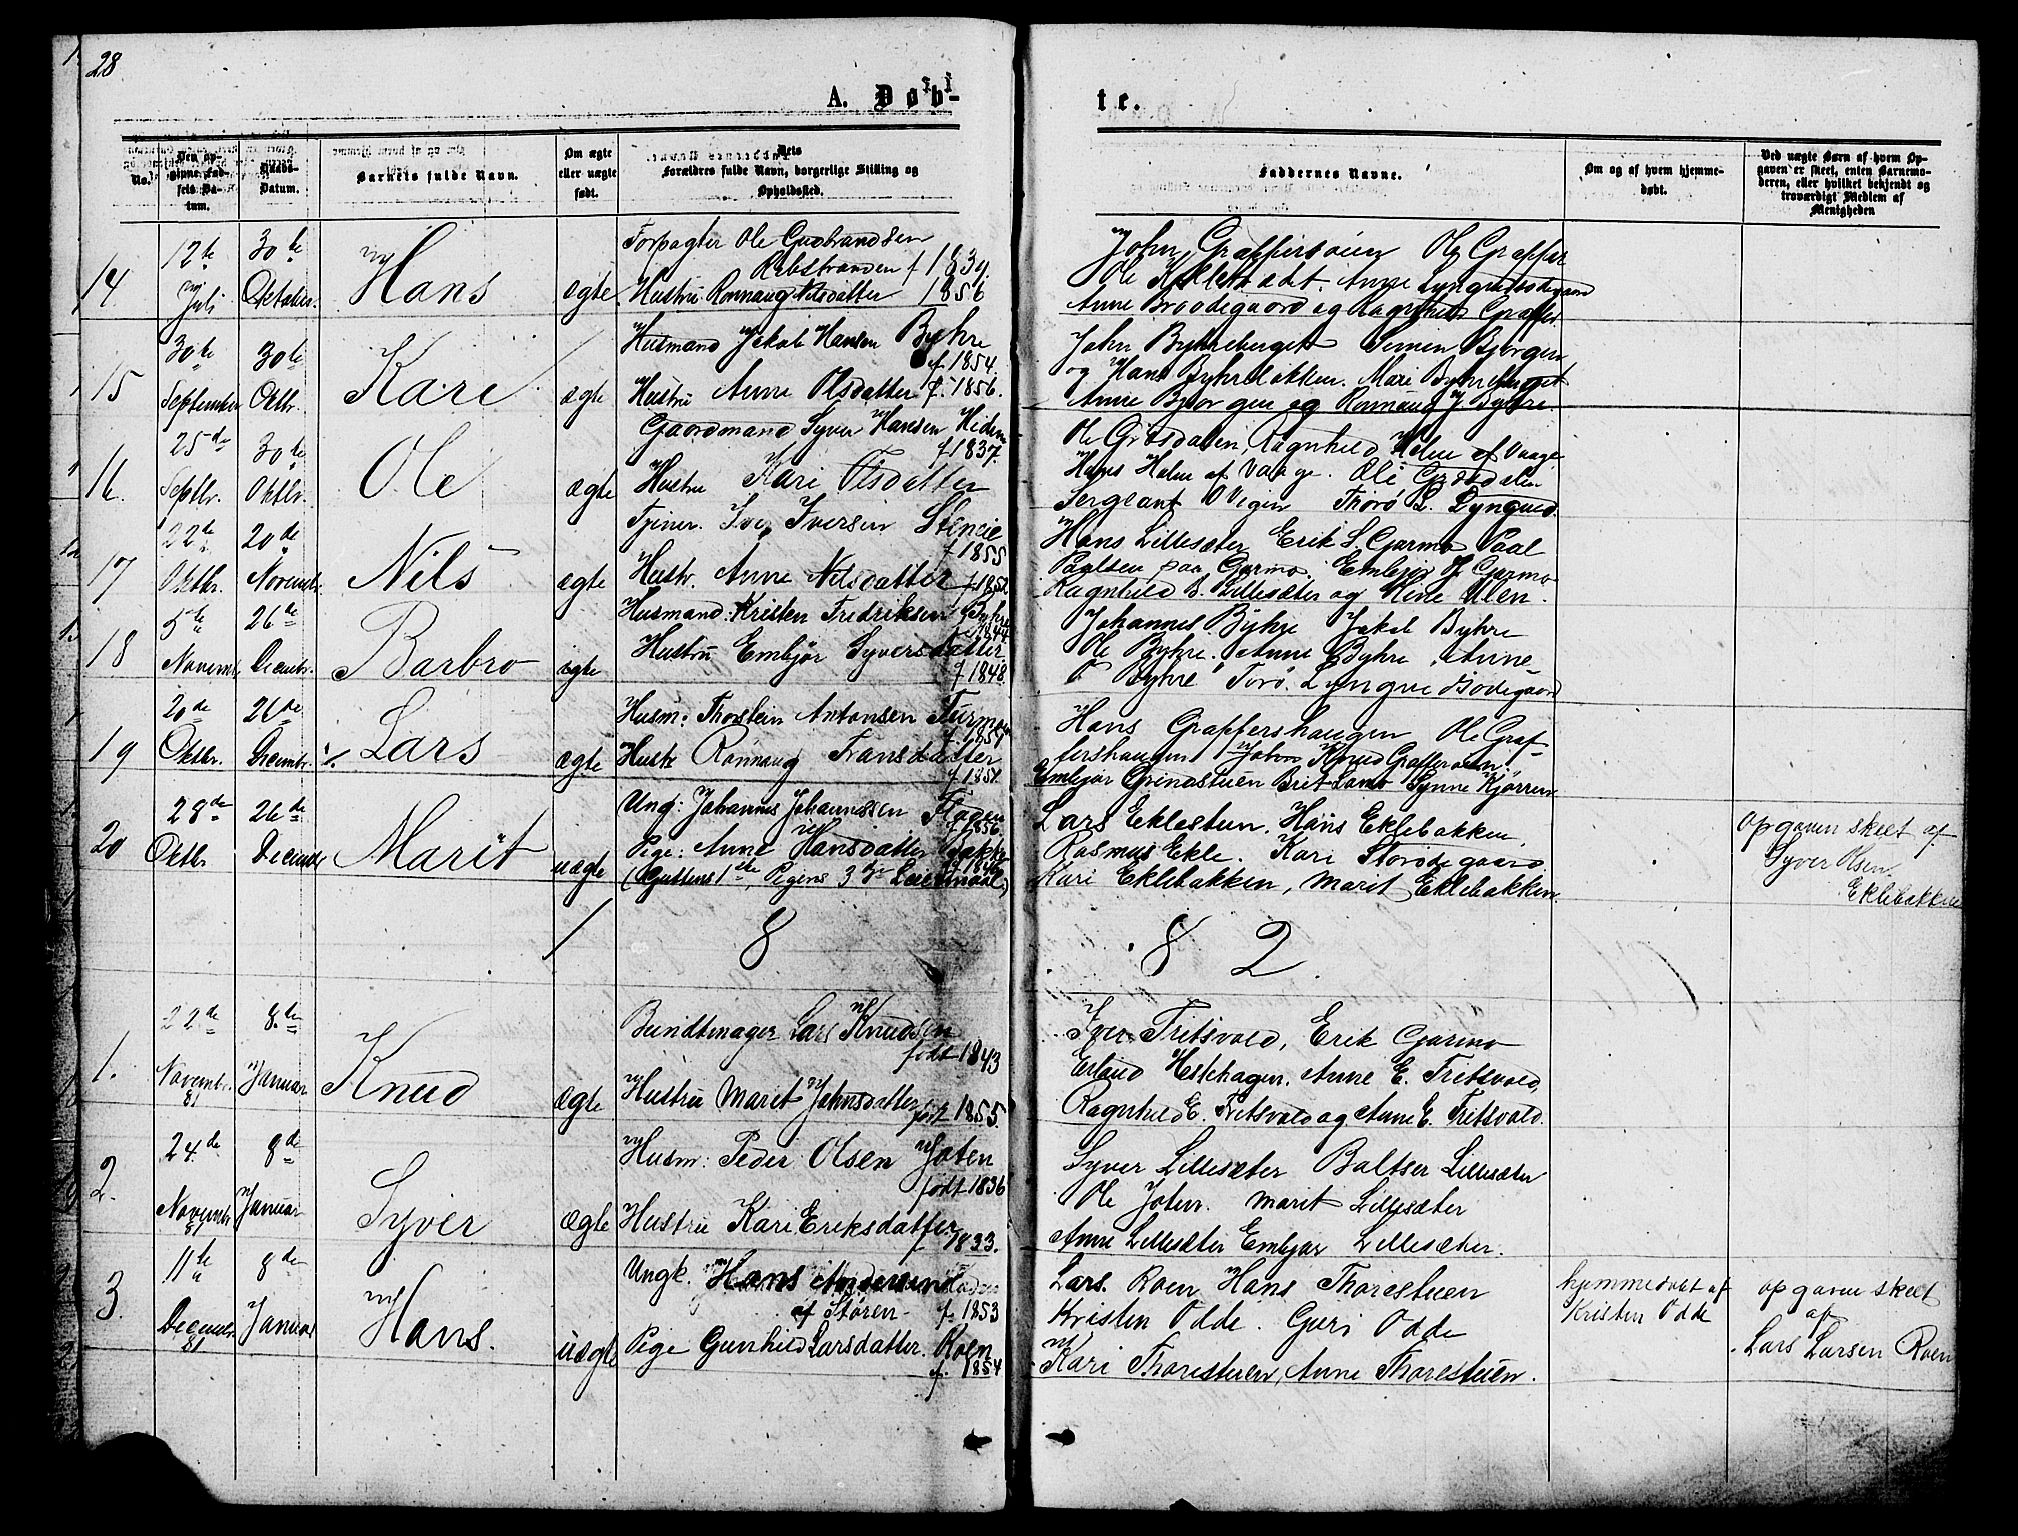 28
A. Døb-
te.
No.
Den op-
givne Fød-
sels Da-
tum.
Daabs-
Datum.
Barnets fulde Navn.
Om ægte
eller uægte
født.
Dets
Forældres fulde Navn, borgerlige Stilling og
Opholdssted.
Faddernes Navne.
Om og af hvem hjemme-
døbt.
Ved uægte Børn af hvem Op-
gaven er skeet, enten Barnemo-
deren, eller hvilket bekjendt og
troværdigt Medlem af
Menigheden
14 12te Juli 30te Oktober. Hans ægte
Forpagter Ole Gudbrandsen
f 1834.
Hustru Rønnaug Nilsdatter 1856
John Graffersøien Ole Graffer
Anne Brødegaard og Ragnhild Graffer.
15 30te September 30te Oktbr. Kari ægte
Husmand Jakob Hansen Byhre
f. 1854.
Hustru Anne Olsdatter f. 1856.
John Byhreberget Simen Bjørgen
og Hans Byhreløkken. Mari Byhreberget
Anne Bjørgen og Rønnaug J. Byhre.
16. 25de Septbr. 30te Oktbr. Ole ægte
Gaardmand Syver Hansen Hidem
f 1837.
Hustru Kari Olsdatter
Ole Grøsdalen, Ragnhild Holm af Vaage
Hans Holm af Vaage. Oli Grøsdalen
Sergeant O Vigen Thorø L. Lyngved.
17 22de Oktbr. 20de Novembr. Nils ægte
Tjener. Iver Iversen Steneie
f 1855
Hustr. Anne Nilsdatter f 1852
Hans Lillesæter Erik S. Garmo Paal
Paalsen paa Garmo. Embjør Garmo
Ragnhild B. Lillesæter og Rine Ulen.
18 5te Novemb. 26de Decembr. Barbro ægte
Husmand: Kristen Fredriksen Byhre
f 1844.
Hustru Embjør Syversdatter
f 1848.
Johannes Byhre Jakob Byhre
Ole Byhre. Anne Byhre, Anne
O Byhre Torø. Lyngved
19 20de Oktbr. 26de Decembr. Lars ægte
Husm: Thorstein Antonsen Furmoen
Hustr Rønnaug Fransdatter
Hans Graffershaugen Ole Graf-
fershaugen John Knud Grafferøien
Embjør Grindstuen Brit Lom Synne Kjørren
20 28de Oktbr 26de Decembr Marit uægte
Ung: Johannes Johannessen Flagen
f 1856.
Pige: Anne Hansdatter Bakke
(Guttens 1ste, Pigens 3die Leiermaal)
Lars Eklestuen. Hans Eklebakken
Rasmus Ekle. Kari Storødegaard
Kari Eklebakken, Marit Eklebakken.
Opgaven skeet af
Syver Olsen
Eklebakken
1 8 8 2.
1. 22de Novembr. 81 8de Januar Knud ægte
Bundtmager Lars Knudsen
født 1843
Hustru Marit Johnsdatter født 1855
Iver Tritsvold, Erik Garmo
Erland Heskhagen, Anne E. Tritsvold,
Ragnhild E. Tritsvold og Anne E. Tritsvold.
2. 24de Novembr 81 8de Januar Syver Ægte
Husm: Peder Olsen Joten
født 1836
Hustru Kari Eriksdatter
f 1833.
Syver Lillesæter Baltser Lillesæter
Ole Joten. Marit Lillesæter
Anne Lillesæter Embjør Lillesæter.
3. 11te Decembr. 81 8de Januar Hans. uægte
Ungk. Hans
af Støren f. 1853
Pige Gunhild Larsdatter. Roen
f. 1854
Lars. Roen Hans Thorestuen
Kristen Odde. Guri Odde
Kari Thorestuen, Anne Thorestuen.
hjemmedøbt af
Kristen Odde
opgaven skeet
af
Lars Larsen Roen